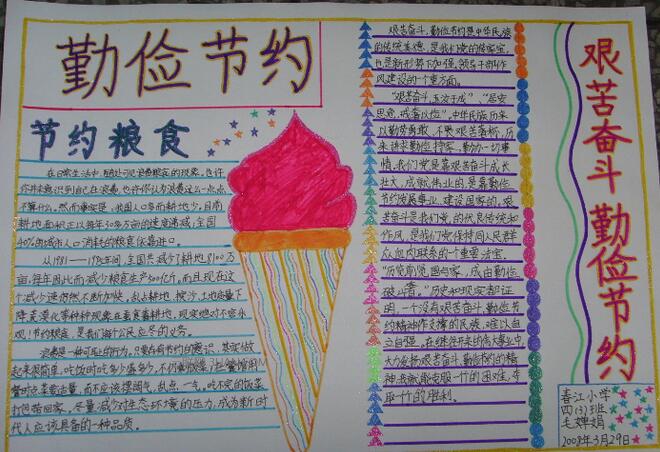 勤俭节约
节约粮食
在日常生活中,随处可见浪费粮食的现象。也许
你并未意识到自己在浪费,也许你认为浪费这么一点点
不算什么。然而事实是:我国人口多而耕地少。目前
耕地面积正以每年30多万亩的速度递减;全国
40%的城市人口消耗的粮食依靠进口。
从1981——1995年间,全国共减少了耕地8100万
亩,每年因此而减少粮食生产500亿斤。而且现在这
个减少速仍然不断加快。乱占耕地、挖沙、土地质量下
降及漠化等种种现象在蚕食着耕地。现实绝对不容乐
观!节约粮食,是我们每个公民应尽的义务。
浪费是一种可耻的行为。只要存有节约的意识,其实做
起来很简单:吃饭时吃多少盛多少,不扔剩饭菜;在餐馆用
餐时点菜要适量,而不应该摆阔气,乱点一气。吃不完的饭菜
打包带回家。尽量减少对生态环境的压力,成为新时
代人应该具备的一种品质。
艰苦奋斗、勤俭节约是中华民族
的传统美德,是我们党的传家宝,
也是新形势下加强领导干部作
风建设的一个重方面。
“艰苦奋斗,玉汝于成”、“居安
思危,戒奢以俭”。中华民族历来
以勤劳勇敢、不畏艰苦著称,历
来讲求勤俭持家、勤勤办一切事
情。我们党是靠艰苦奋斗成长
壮大、成就伟业的,是靠勤俭
节约发展事业、建设国家的。艰
苦奋斗是我们党的优良传统和
作风,是我们党保持同人民群
众血肉联系的一个重要法宝。
“历览前贤国与家,成由勤俭
破由奢。”历史和现实都证
明,一个没有艰苦奋斗、勤俭节
约精神作支撑的民族,难以自
立自强。在继往开来的伟大事业中,
大力发扬艰苦奋斗、勤俭节约的精
神,我就能克服一个的困难,夺
取一个的胜利。
艰苦奋斗 勤俭节约
春江小学
四(3)班
毛婵娟
2008年3月29日